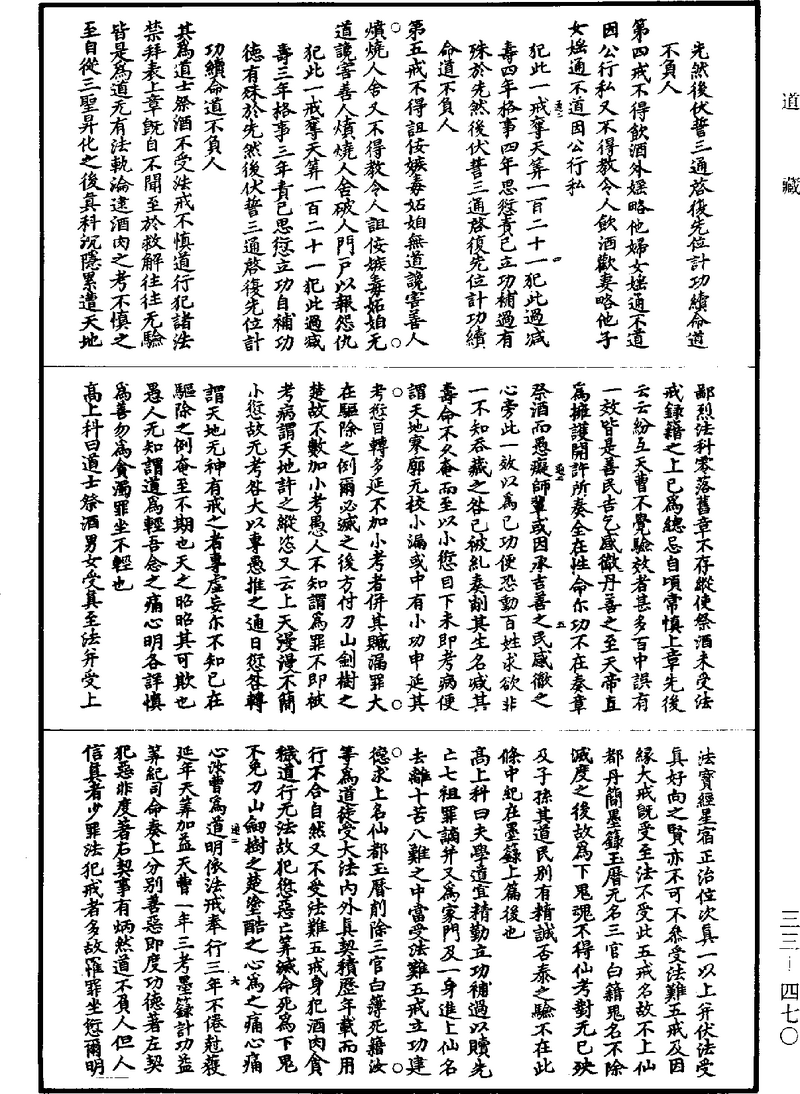 道藏
先然後伏誓三通啓復先位計功續命道
不負人
第四戒不得飲酒外婬略他婦女婬通不道
因公行私又不得教令人飲酒歡妻略他子
女婬通不道因公行私
犯此一戒奪天筭一百二十一犯此過減
壽四年格事四年思愆責己立功補過有
殊於先然後伏誓三通啓復先位計功續
命道不負人
第五戒不得詛佞嫉毒妬姤無道讒害善人
燌燒人舍又不得教令人詛佞嫉毒妬姤无
道讒害善人燌燒人舍破人門戶以報怨仇
犯此一戒奪天筭一百二十一犯此過減
壽三年格事三年責己思愆立功自補功
德有殊於先然後伏誓三通啓復先位計
功續命道不負人
其為道士祭酒不受法戒不慎道行犯諸法
禁拜表上章既自不聞至於救解往往无驗
皆是為道无有法軌淪逮酒肉之考不慎之
至自從三聖昇化之後真科沉隱累遭天地
鄙烈法科零落舊章不存縱使祭酒未受法
戒錄籍之上已為總忌自頃常慎上章先後
云云紛互天曹不覺驗效者甚多百中誤有
一效皆是善民吉乞感徹丹善之至天帝直
為擁護開許所奏全在性命尒功不在奏章
祭酒而愚癡師輩或因承吉善之民感徹之
心旁此一效以為已功便恐動百姓求欲非
一不知吞藏之咎已被糺奏削其生名減其
壽命不久奄而至以小愆目下未即考病便
謂天地寥廓无校小漏或中有小功申延其
考愆目轉多延不加小考者併其贓漏罪大
在驅除之例爾必滅之後方付刀山劍樹之
楚故不數加小考愚人不知謂為罪不即被
考病謂天地許之縱恣又云上天漫漫不簡
小愆故无考咎大以專愚推之通日愆咎轉
謂天地无神有戒之者專虛妄尒不知已在
驅除之例奄至不期也天之昭昭其可欺也
愚人无知謂道為輕吾念之痛心明各詳慎
為善勿為貪濁罪坐不輕也
高上科曰道士祭酒男女受真至法并受上
法寶經星宿正治位次真一以上并伏法受
真好向之賢亦不可不叅受法難五戒及因
緣大戒既受至法不受此五戒名故不上仙
都丹簡墨籙玉曆无名三官白籍鬼名不除
滅度之後故為下鬼魂不得仙考對无已殃
及子孫其道民別有精誠否泰之驗不在此
條中紀在墨籙上篇後也
高上科曰夫學道宜精勤立功補過以贖先
亡七祖罪謫并又為家門及一身進上仙名
去離十苦八難之中當受法難五戒立功建
德求上名仙都玉曆削除三官白簿死籍汝
等為道徒受大法內外真契積歷年載而用
行不合自然又不受法難五戒身犯酒肉貪
穢道行无法故犯愆惡亡筭滅命死為下鬼
不免刀山劒樹之楚塗酷之心為之痛心痛
心汝曹為道明依法戒奉行三年不倦尅獲
延年天筭加益天曹一年三考墨籙計功益
筭紀司命奏上分別善惡即度功德著左契
犯惡非度著右契事有炳然道不負人但人
信真者少罪法犯戒者多故罹罪坐愆爾明
三三—四七〇